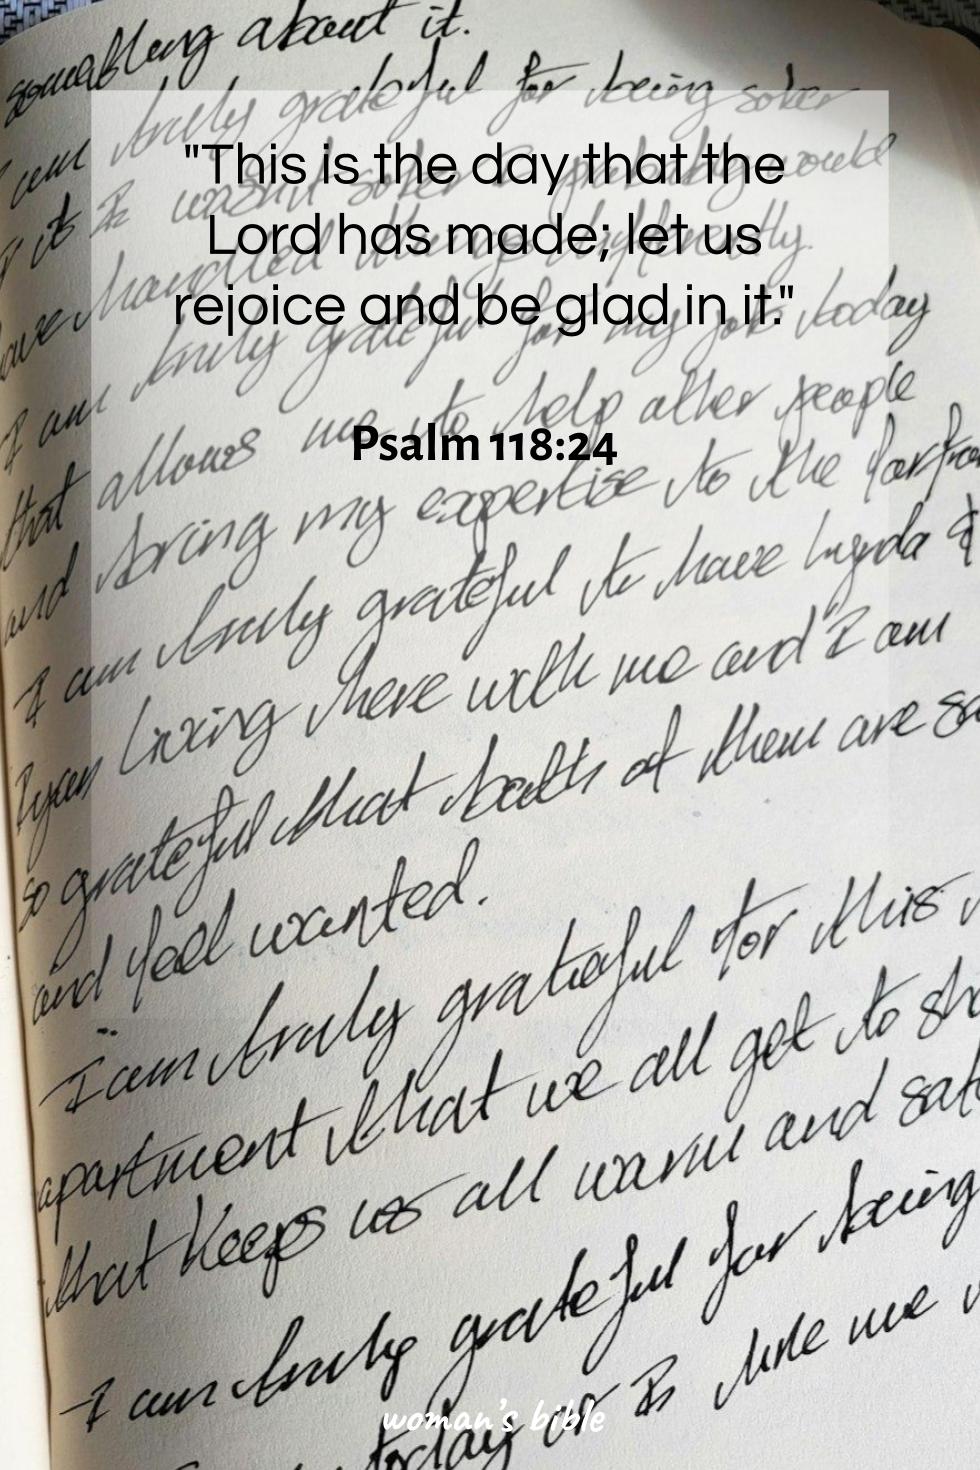 something about it.
I am truly grateful for being sober
if it I wasn't sober I probably would
have handled things differently.
"This is the day that the
Lord has made; let us
rejoice and be glad in it."
I am truly grateful for my job today
that allows me to help other people
Psalm 118:24
and bring my expertise to the
I am truly grateful to have
living here with me and I am
so grateful that both of them are
and feel wanted.
I am truly grateful for this
apartment that we all get to
that keeps us all warm and
I am truly grateful for being
today or I
woman's bible